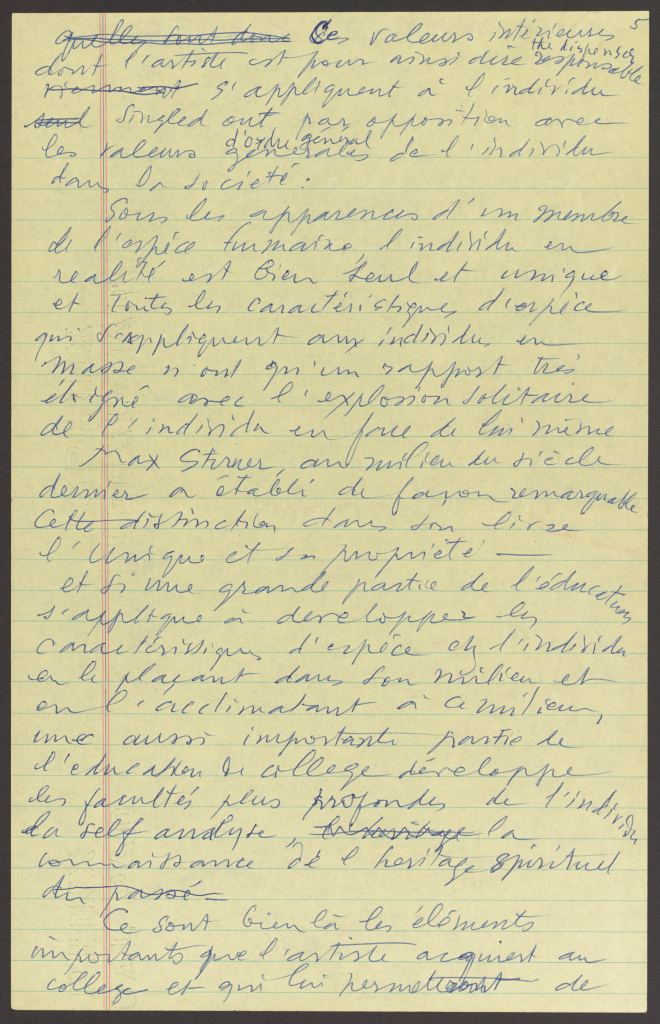 5
quelles sont donc Ces valeurs intérieures
the dispenser
dont l'artiste est pour ainsi dire responsable
s'appliquent à l'individu
seul Singled out par opposition avec
d'ordre général
les valeurs générales de l'individu
dans la société :
Sous les apparences d'un membre
de l'espèce humaine, l'individu en
realité est bien seul et unique
et toutes les caractéristiques d'espèce
qui s'appliquent aux individus en
masse n'ont qu'un rapport très
éloigné avec l'explosion solitaire
de l'individu en face de lui même
Max Stirner, au milieu du siècle
dernier a établi de façon remarquable
Cette distinction dans son livre
l'Unique et sa propriété —
et si une grande partie de l'éducation
s'applique à developper les
caractéristiques d'espèce ch l'individu
en le plaçant dans son milieu et
en l'acclimatant à ce milieu,
une aussi importante partie de
l'education de college développe
les facultés plus profondes de l'individu
la self analyse, la
connaissance de l'heritage spirituel
du passé —
Ce sont bien là les éléments
importants que l'artiste acquiert au
college et qui lui permettront de